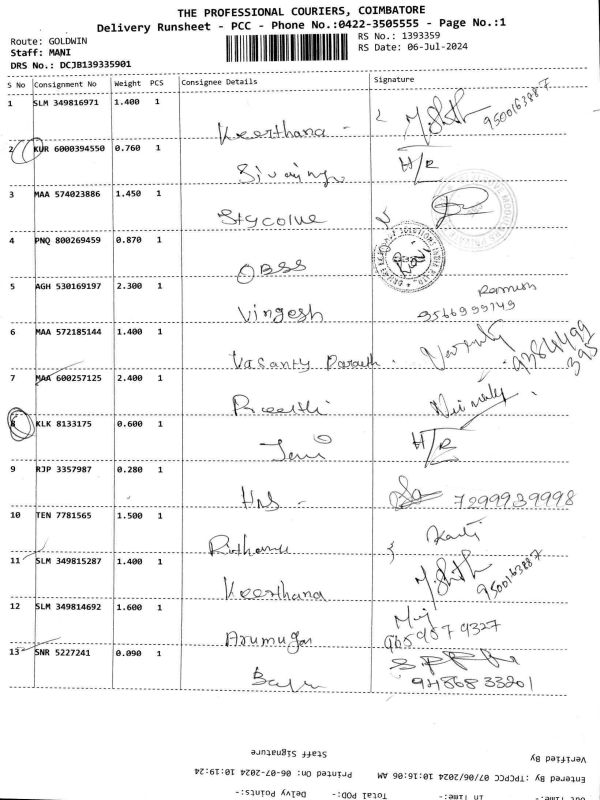 THE PROFESSIONAL COURIERS, COIMBATORE
Delivery Runsheet - PCC - Phone No.:0422-3505555 - Page No.:1
Route: GOLDWIN
RS No.: 1393359
Staff: MANI
RS Date: 06-Jul-2024
DRS No.: DCJB139335901
S No Consignment No Weight PCS Consignee Details Signature
1 SLM 349816971 1.400 1
Keerthana - 9500163887
2 KUR 6000394550 0.760 1
H/R
3 MAA 574023886 1.450 1
Stycolue
4 PNQ 800269459 0.870 1
OBSS
5 AGH 530169197 2.300 1
Vingesh Ramesh
9566999149
6 MAA 572185144 1.400 1
Vasanty 9384499
395
7 MAA 600257125 2.400 1
Preethi
8 KLK 8133175 0.600 1
H/R
9 RJP 3357987 0.280 1
HNS - 7299939998
10 TEN 7781565 1.500 1
11 SLM 349815287 1.400 1
Keerthana 9500163887
12 SLM 349814692 1.600 1
Arumugam 9659579327
13 SNR 5227241 0.090 1
9486833201
Staff Signature
Verified By
Entered By :TPCPCC: 07/06/2024 10:16:06 AM Printed On: 06-07-2024 10:19:24
In Time -: Total POD: Delvy Points:-